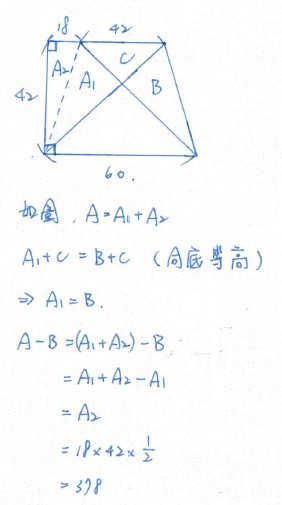 18 42
A2 A1 C B
42
60.
如圖, A=A1+A2
A1+C = B+C (同底等高)
⇒ A1=B.
A-B =(A1+A2)-B
= A1+A2-A1
= A2
= 18×42×1/2
= 378